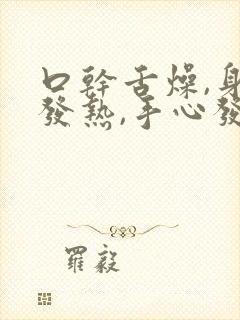 口幹舌燥,身
發熱,手心發
羅毅